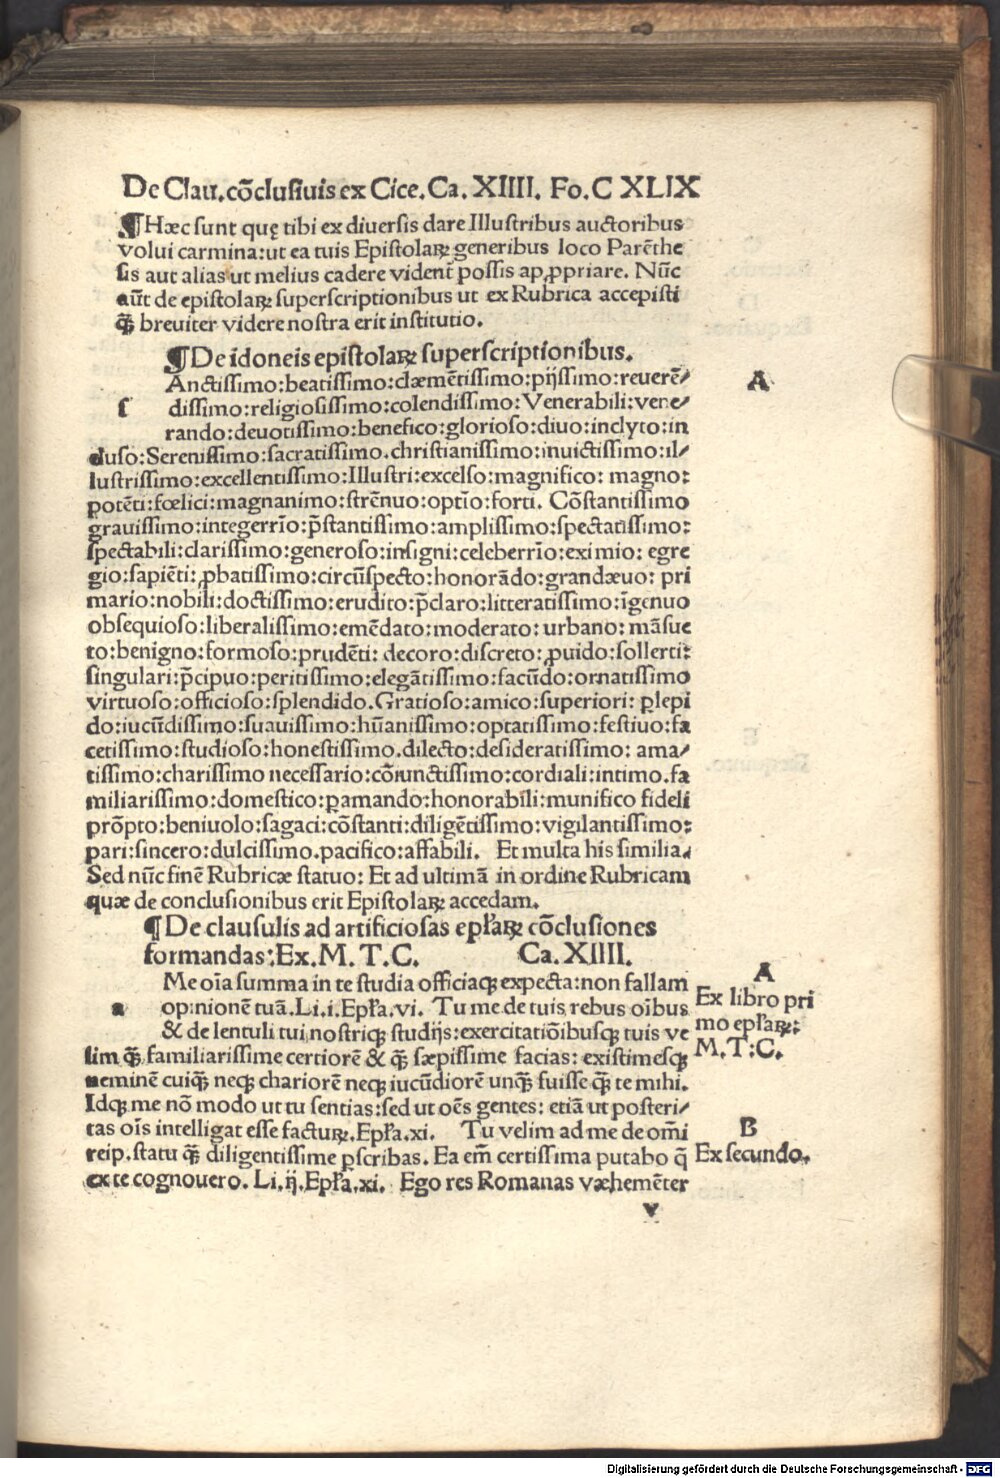 De Clau.cõclusiuis ex Cice.Ca. XIIII. Fo.C XLIX
¶Hæc sunt quę tibi ex diuersis dare Illustribus auctoribus
volui carmina:ut ea tuis Epistolaꝝ generibus loco Parẽthe
sis aut alias ut melius cadere vident᷑ possis ap ꝓpriare. Nũc
aũt de epistolaꝝ superscriptionibus ut ex Rubrica accepisti
ꝙ̃ breuiter videre nostra erit institutio.
¶De idoneis epistolaꝝ superscriptionibus.
A
Anctissimo:beatissimo:clæmẽtissimo:pijssimo:reuerẽ/
ſ dissimo:religiosissimo:colendissimo:Venerabili:vene/
rando:deuotissimo:benefico:glorioso:diuo:inclyto:in
duso:Serenissimo:sacratissimo.christianissimo:inuictissimo:il/
lustrissimo:excellentissimo:Illustri:excelso:magnifico: magno:
potẽti:fœlici:magnanimo:strẽnuo:optĩo:forti. Cõstantissimo
grauissimo:integerrĩo:p̃stantissimo:amplissimo:spectatissimo:
spectabili:clarissimo:generoso:insigni:celeberrĩo:eximio: egre
gio:sapiẽti:ꝓbatissimo:circũspecto:honorãdo:grandæuo: pri
mario:nobili:doctissimo:erudito:p̃claro:litteratissimo:ĩgenuo
obsequioso:liberalissimo:emẽdato:moderato: urbano: mãsue
to:benigno:formoso:prudẽti: decoro:discreto:ꝓuido:sollerti:
singulari:p̃cipuo:peritissimo:elegãtissimo:facũdo:ornatissimo
virtuoso:officioso:splendido.Gratioso:amico:superiori: p̱lepi
do:iucũdissimo:suauissimo:hũanissimo:optatissimo:festiuo:fa
cetissimo:studioso:honestissimo.dilecto:desideratissimo: ama/
tissimo:charissimo necessario:cõiunctissimo:cordiali:intimo.fa
miliarissimo:domestico:ꝑamando:honorabili:munifico fideli
prõpto:beniuolo:sagaci:cõstanti:diligẽtissimo:vigilantissimo:
pari:sincero:dulcissimo.pacifico:affabili. Et multa his similia.
Sed nũc finẽ Rubricæ statuo: Et ad ultimã in ordine Rubricam
quæ de conclusionibus erit Epistolaꝝ accedam.
¶De clausulis ad artificiosas epl̃aꝝ cõclusiones
formandas:Ex.M.T.C. Ca.XIIII.
Me oĩa summa in te studia officiaqꝫ expecta:non fallam
a opinionẽ tuã.Li.i.Epl̃a.vi. Tu me de tuis rebus oĩbus
& de lentuli tui nostriqꝫ studijs:exercitatiõibusqꝫ tuis ve
lim ꝙ̃ familiarissime certiorẽ & ꝙ̃ sæpissime facias: existimesqꝫ
neminẽ cuiꝙ̃ neqꝫ chariorẽ neqꝫ iucũdiorẽ unꝙ̃ fuisse ꝙ̃ te mihi.
Idqꝫ me nõ modo ut tu sentias:sed ut oẽs gentes: etiã ut posteri/
tas oĩs intelligat esse factuꝝ.Epl̃a.xi. Tu velim ad me de om̃i
reip.statu ꝙ̃ diligentissime ꝑscribas. Ea em̃ certissima putabo q̃
ex te cognouero. Li.ij.Epl̃a.xi. Ego res Romanas væhemẽter
A
Ex libro pri
mo epl̃aꝝ:
M.T:C.
B
Ex secundo.
v
Digitalisierung gefördert durch die Deutsche Forschungsgemeinschaft - DFG